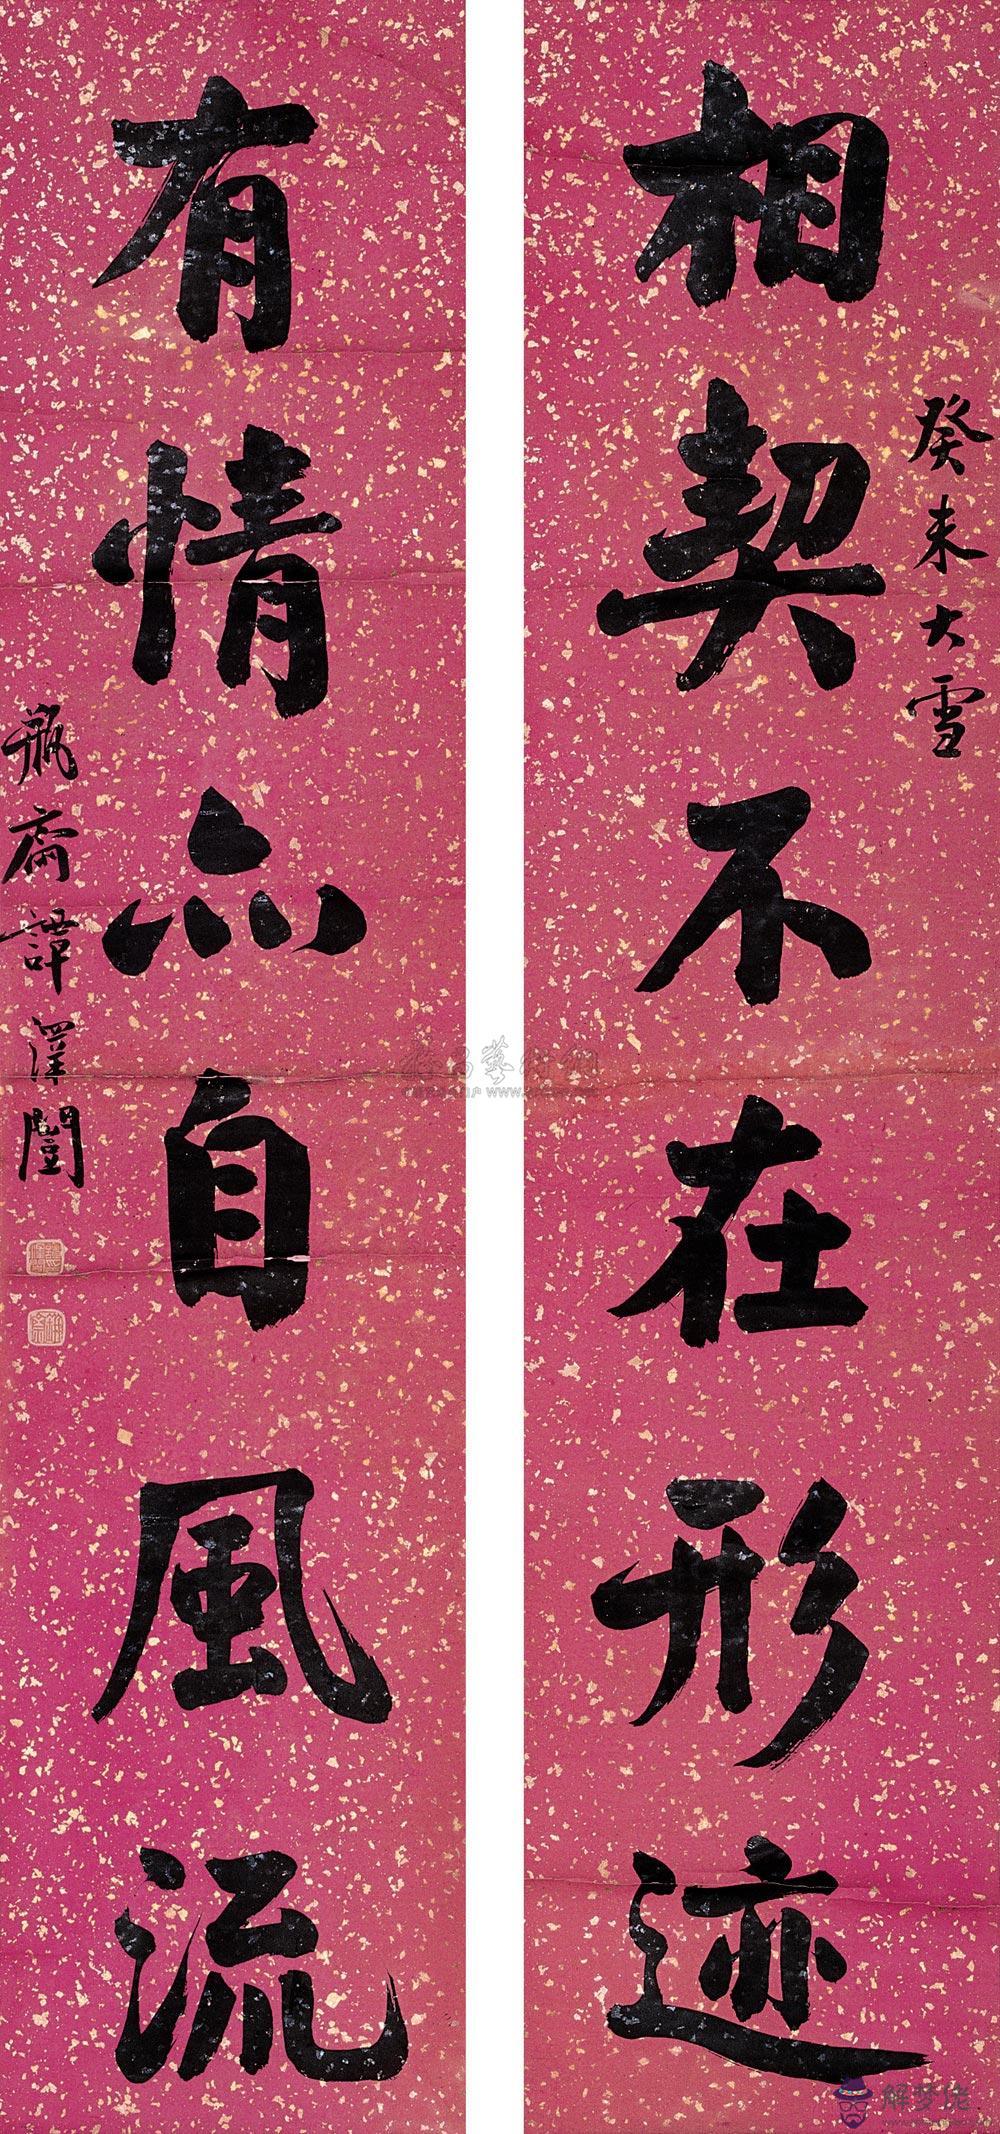 相契不在形迹
癸未大雪
有情亦自風流
瓶齋譚澤闓
解梦佬